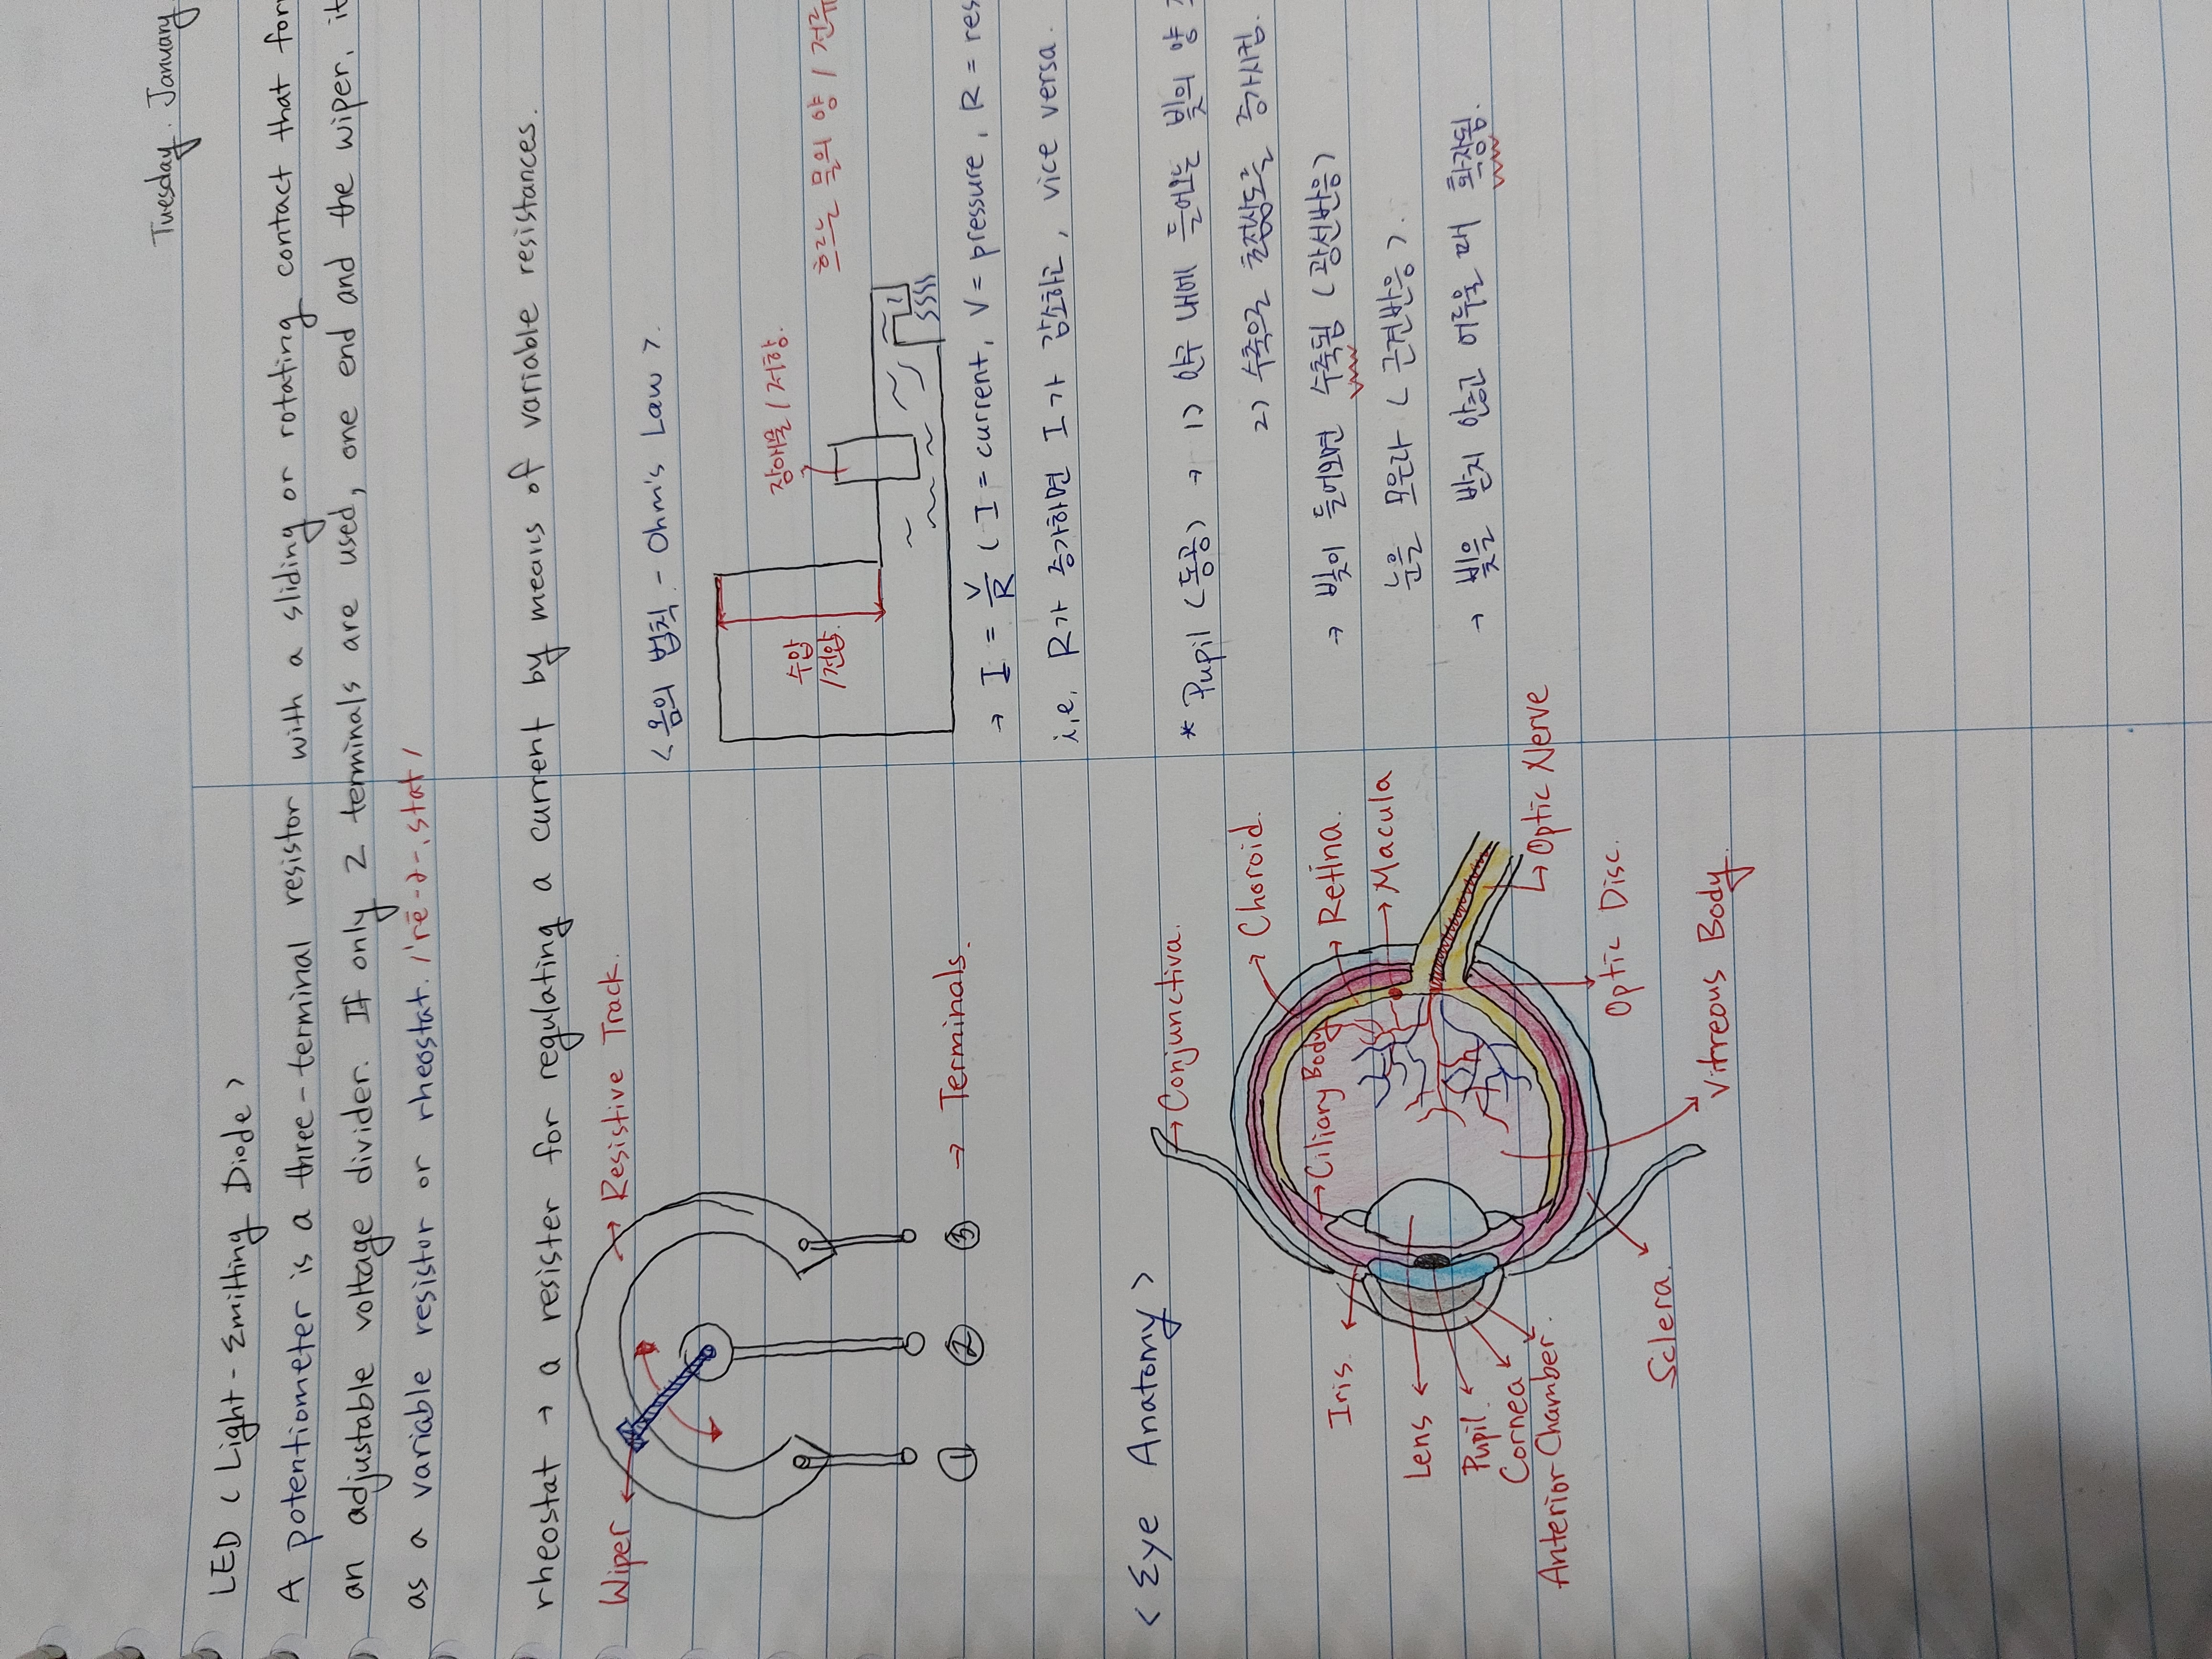 Tuesday. January
LED ( Light - Emitting Diode >
A potentiometer is a three - terminal resistor with a sliding or rotating contact that for
an adjustable voltage divider. If only 2 terminals are used, one end and the wiper, it
as a variable resistor or rheostat. /'rē-ə-,stat/
rheostat → a resister for regulating a current by means of variable resistances.
Wiper
→ Resistive Track.
① ② ③ → Terminals.
< 옴의 법칙 - Ohm's Law >
장애물 / 저항
흐르는 물의 양 / 전류
수압
/ 전압
→ I = V/R ( I = current, V = pressure, R = res
i,e. R가 증가하면 I가 감소하고, vice versa.
< Eye Anatomy >
→ Conjunctiva.
→ Choroid.
→ Retina.
→ Macula
→ Optic Nerve
Optic Disc.
Vitreous Body
→ Ciliary Body
Iris
Lens
Pupil.
Cornea
Anterior Chamber.
Sclera.
* Pupil ( 동공 ) → 1) 안구 내에 들어오는 빛의 양
2) 수축으로 초점심도를 증가시킴.
→ 빛이 들어오면 수축됨 ( 광선반응 )
눈을 모은다 ( 근견반응 ).
→ 빛을 받지 않고 어두울 때 확장됨.